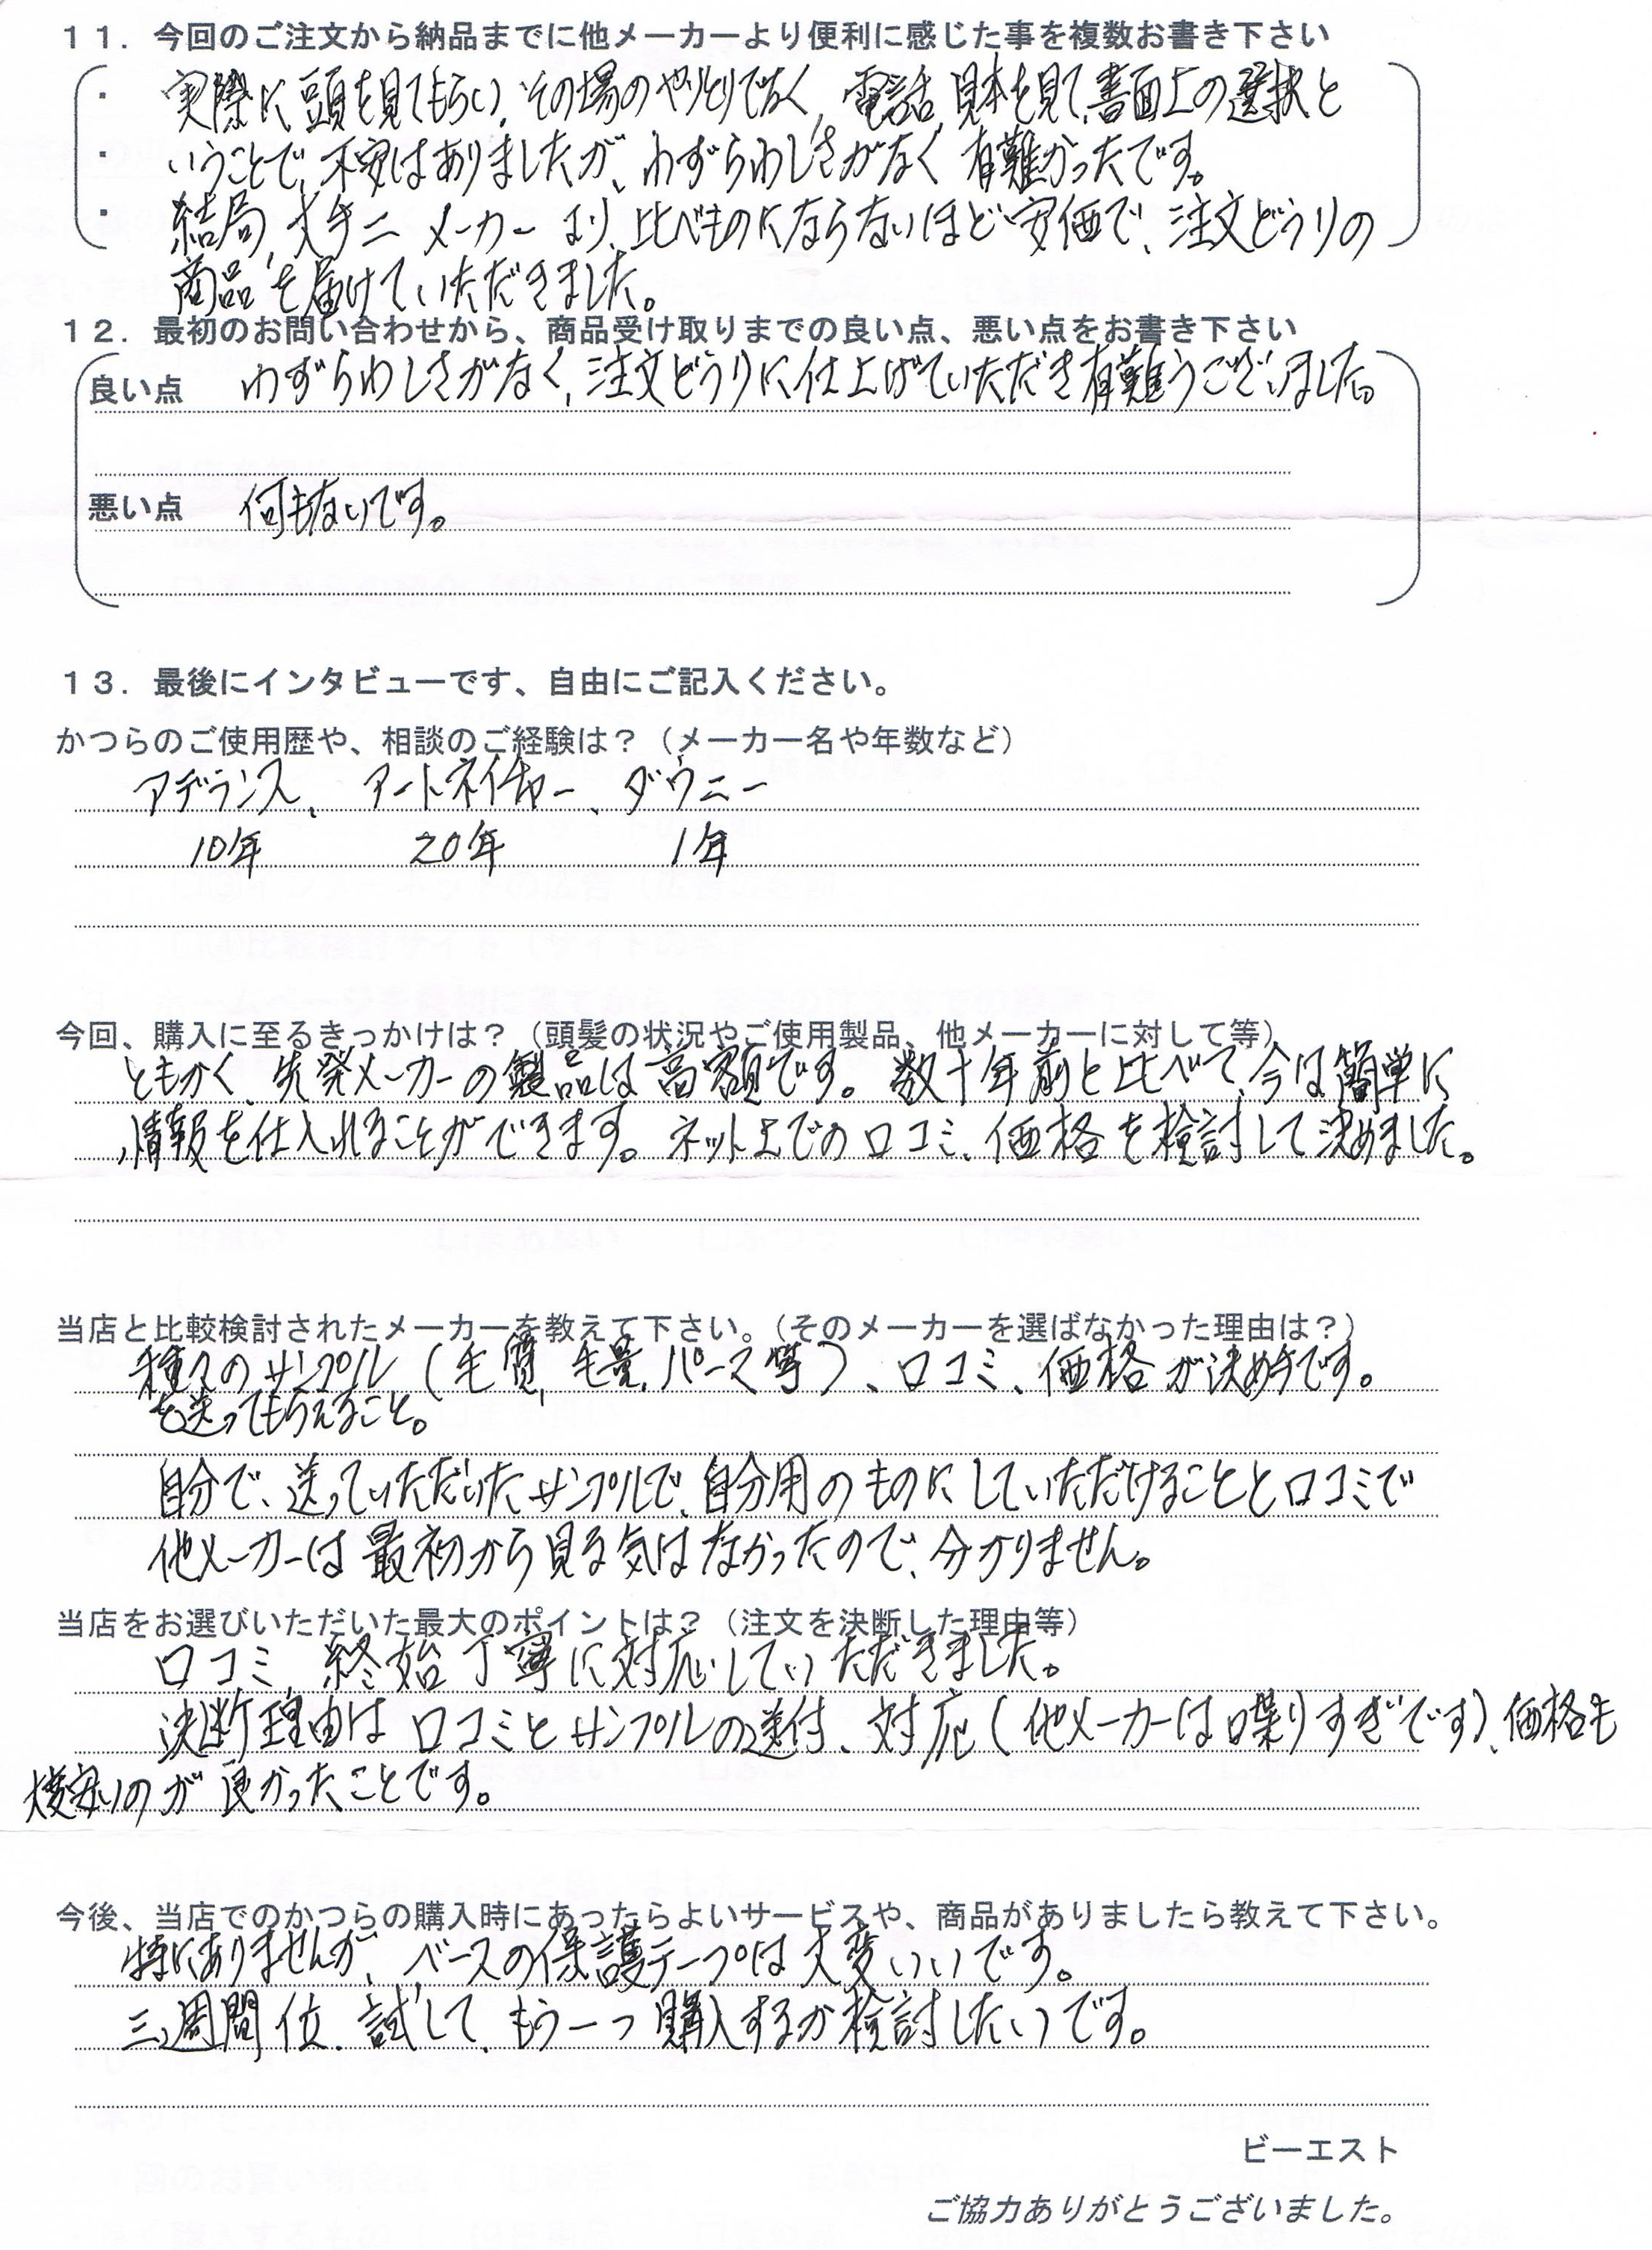 １１．今回のご注文から納品までに他メーカーより便利に感じた事を複数お書き下さい
・ 実際に頭を見てもらい、その場のやりとりでなく、電話、見本を見て、書面上の選択と
・ いうことで、不安はありましたが、わずらわしさがなく有難かったです。
・ 結局、大手二メーカーより、比べものにならないほど安価で、注文どうりの
商品を届けていただきました。
１２．最初のお問い合わせから、商品受け取りまでの良い点、悪い点をお書き下さい
良い点 わずらわしさがなく、注文どうりに仕上げていただき有難うございました。
悪い点 何もないです。
１３．最後にインタビューです、自由にご記入ください。
かつらのご使用歴や、相談のご経験は？（メーカー名や年数など）
アデランス、アートネイチャー、ダウニー
10年 20年 1年
今回、購入に至るきっかけは？（頭髪の状況やご使用製品、他メーカーに対して等）
ともかく、先発メーカーの製品は高額です。数十年前と比べて、今は簡単に
情報を仕入れることができます。ネット上での口コミ、価格を検討して決めました。
当店と比較検討されたメーカーを教えて下さい。（そのメーカーを選ばなかった理由は？）
種々のサンプル（毛質、毛量、パース等）、口コミ、価格が決め手です。
を送ってもらえること。
自分で、送っていただいたサンプルで、自分用のものにしていただけることと口コミで
他メーカーは最初から見る気はなかったので、分かりません。
当店をお選びいただいた最大のポイントは？（注文を決断した理由等）
口コミ、終始丁寧に対応していただきました。
決断理由は口コミとサンプルの送付、対応（他メーカーは喋りすぎです）、価格も
安いのが良かったことです。
今後、当店でのかつらの購入時にあったらよいサービスや、商品がありましたら教えて下さい。
特にありませんが、ベースの保護テープは大変いいです。
三週間位、試して、もう一つ購入するか検討したいです。
ビーエスト
ご協力ありがとうございました。